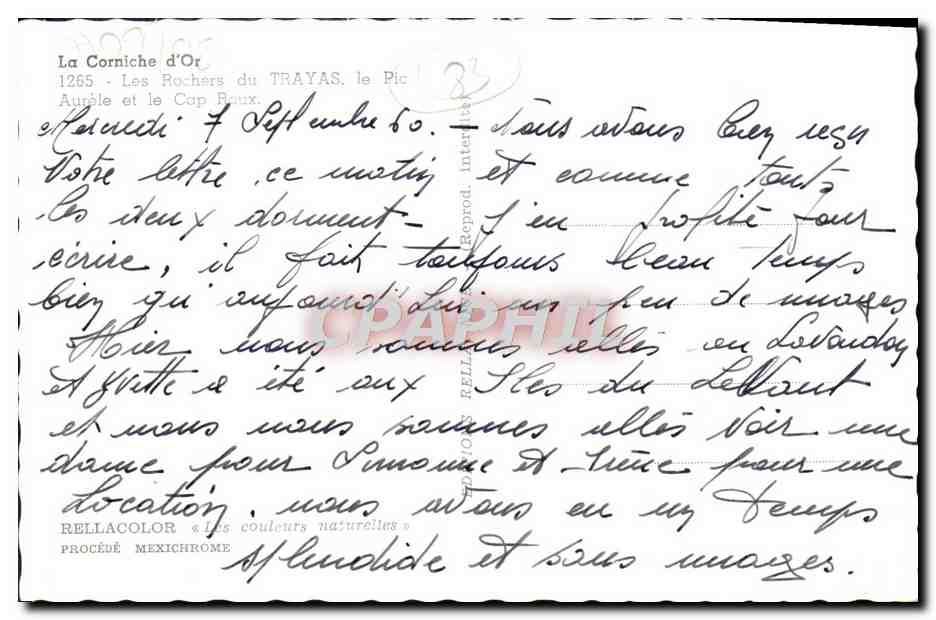 La Corniche d'Or
1265 - Les Rochers du TRAYAS, le Pic
Aurèle et le Cap Roux.
83
Mercredi 7 Septembre 60. — Nous avons bien reçu
Votre lettre ce matin et comme toutes
les deux dorment - j'en profite pour
écrire, il fait toujours beau temps
bien qu'aujourd'hui un peu de nuages
Hier nous sommes allés au Lavandou
et Yvette a été aux Iles du Levant
et nous nous sommes allés voir une
dame pour Simonne et Irène pour une
Location. nous avons eu un temps
splendide et sans nuages.
RELLACOLOR « Les couleurs naturelles »
PROCÉDÉ MEXICHROME
EDITIONS RELLA
(Reprod. interdite)
CPAPHIL